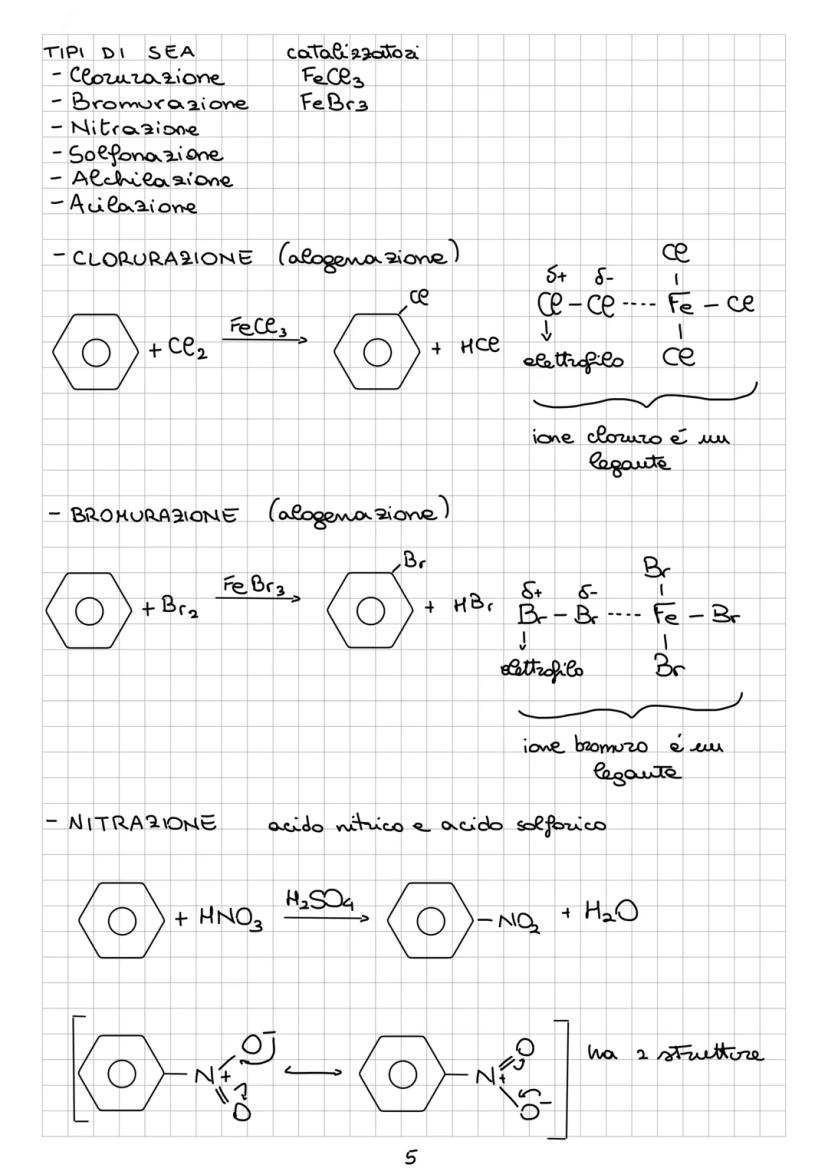 TIPI DI SEA catalizzatori
- Clorurazione FeCl₃
- Bromurazione FeBr₃
- Nitrazione
- Solfonazione
- Alchilazione
- Acilazione
- CLORURAZIONE (alogenazione)
+ Cl₂ FeCl₃ → Cl + HCl
δ+ δ- Cl
Cl - Cl ---- Fe - Cl
elettrofilo Cl
ione cloruro é un
legante
- BROMURAZIONE (alogenazione)
+ Br₂ FeBr₃ → Br + HBr
δ+ δ- Br
Br - Br ---- Fe - Br
elettrofilo Br
ione bromuro é un
legante
- NITRAZIONE acido nitrico e acido solforico
+ HNO₃ H₂SO₄ → - NO₂ + H₂O
[ - N+ O- = O ↔ - N+ = O O- ] ha 2 strutture
5